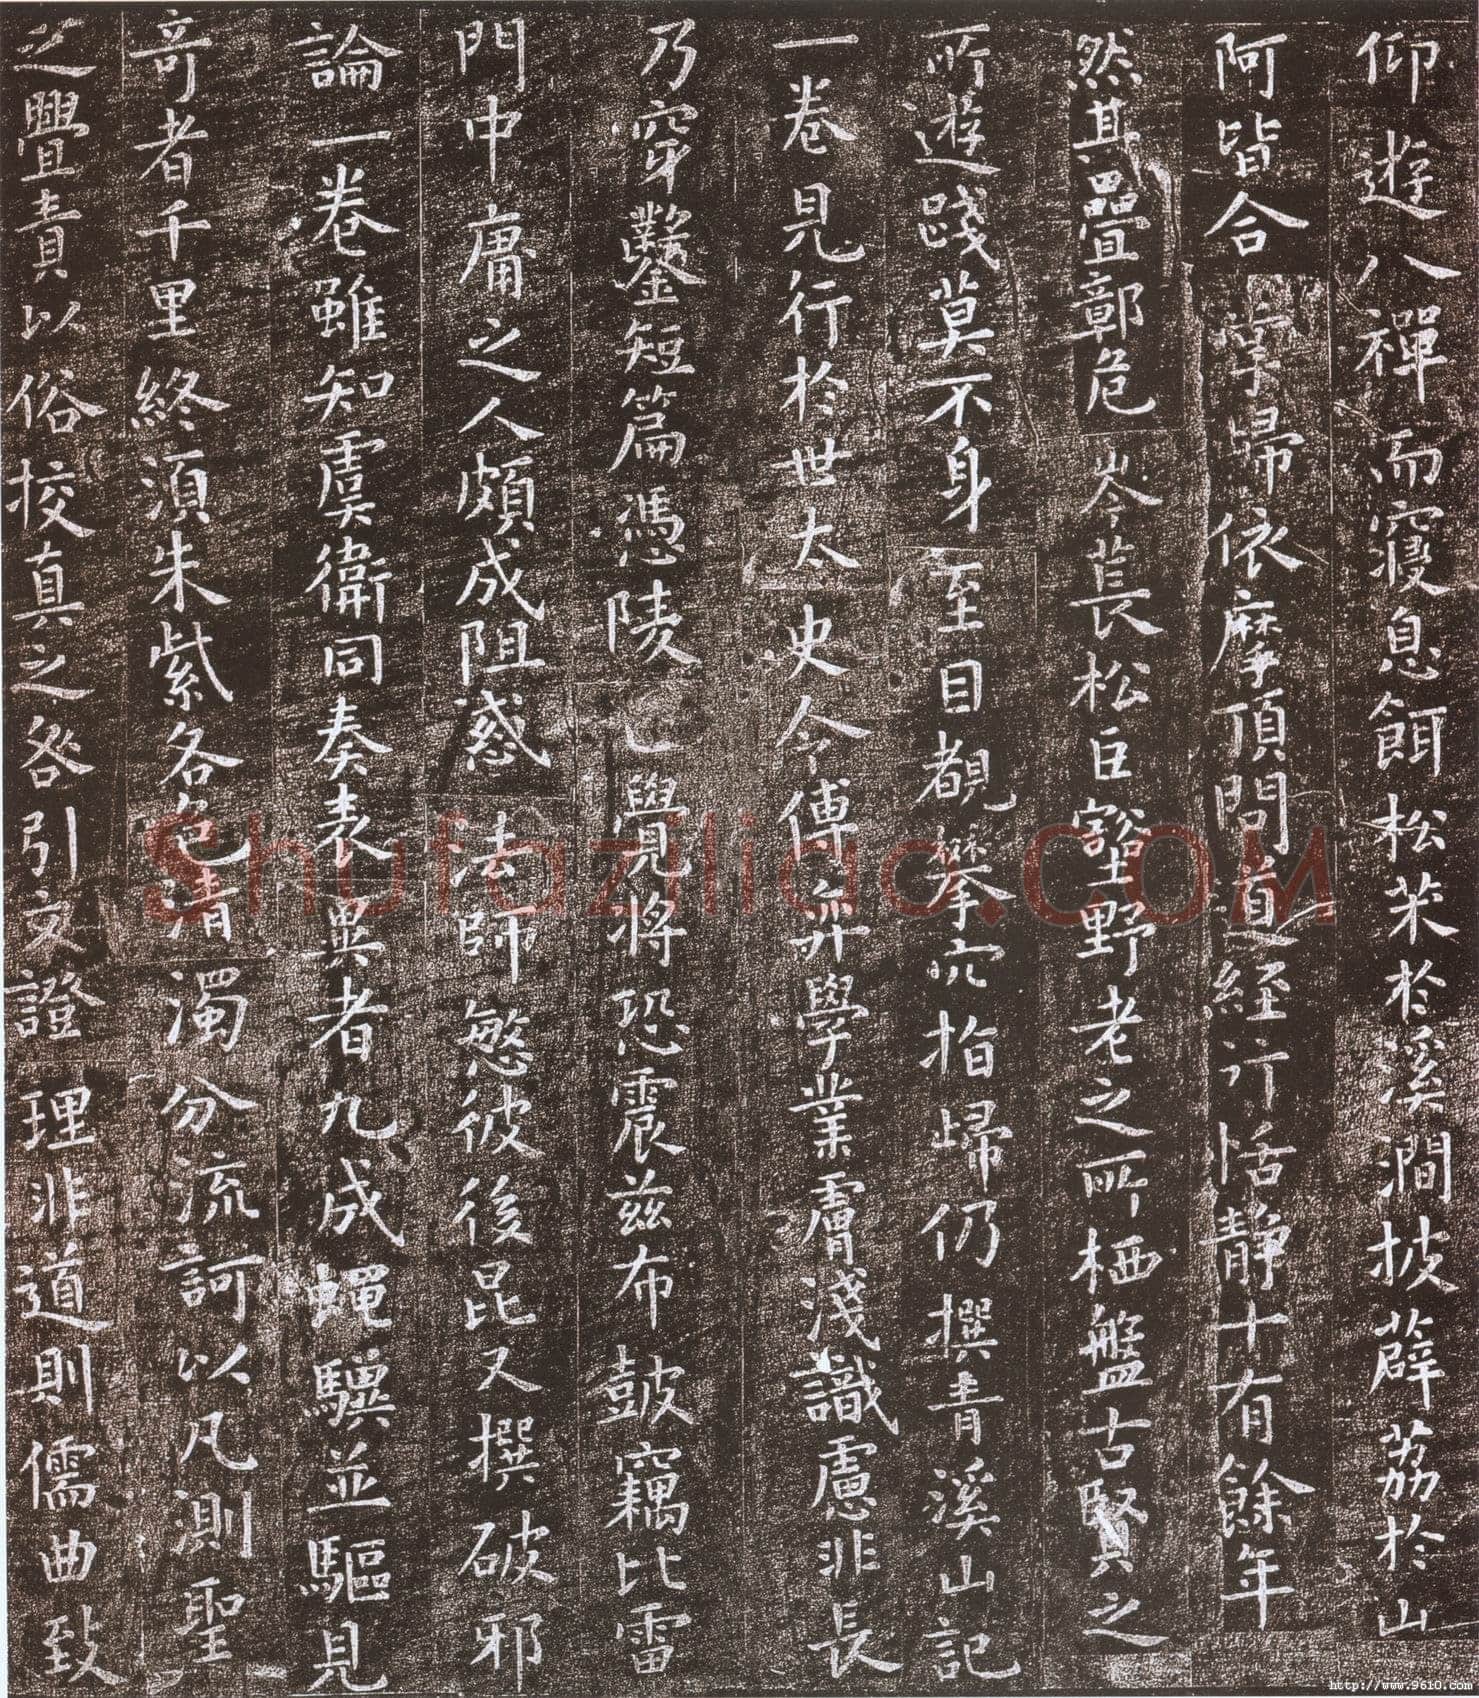 仰遊八禪而寢息餌松朮於溪澗披薜荔於山
阿皆合掌歸依摩頂問道經行恬靜十有餘年
然其疊嶂危岑長松巨壑野老之所栖盤古賢之
所遊踐莫不身至目覩攀穴指歸仍撰青溪山記
一卷見行於世太史令傅弈學業膚淺識慮非長
乃穿鑿短篇憑陵正覺將恐震茲布鼓竊比雷
門中庸之人頗成阻惑法師慜彼後昆又撰破邪
論一卷雖知虞衛同奏表異者九成蠅驥並驅見
奇者千里終須朱紫各色清濁分流訶以凡測聖
之舋責以俗校真之咎引文證理非道則儒曲致
Shufaziliao.COM
http://www.9610.com